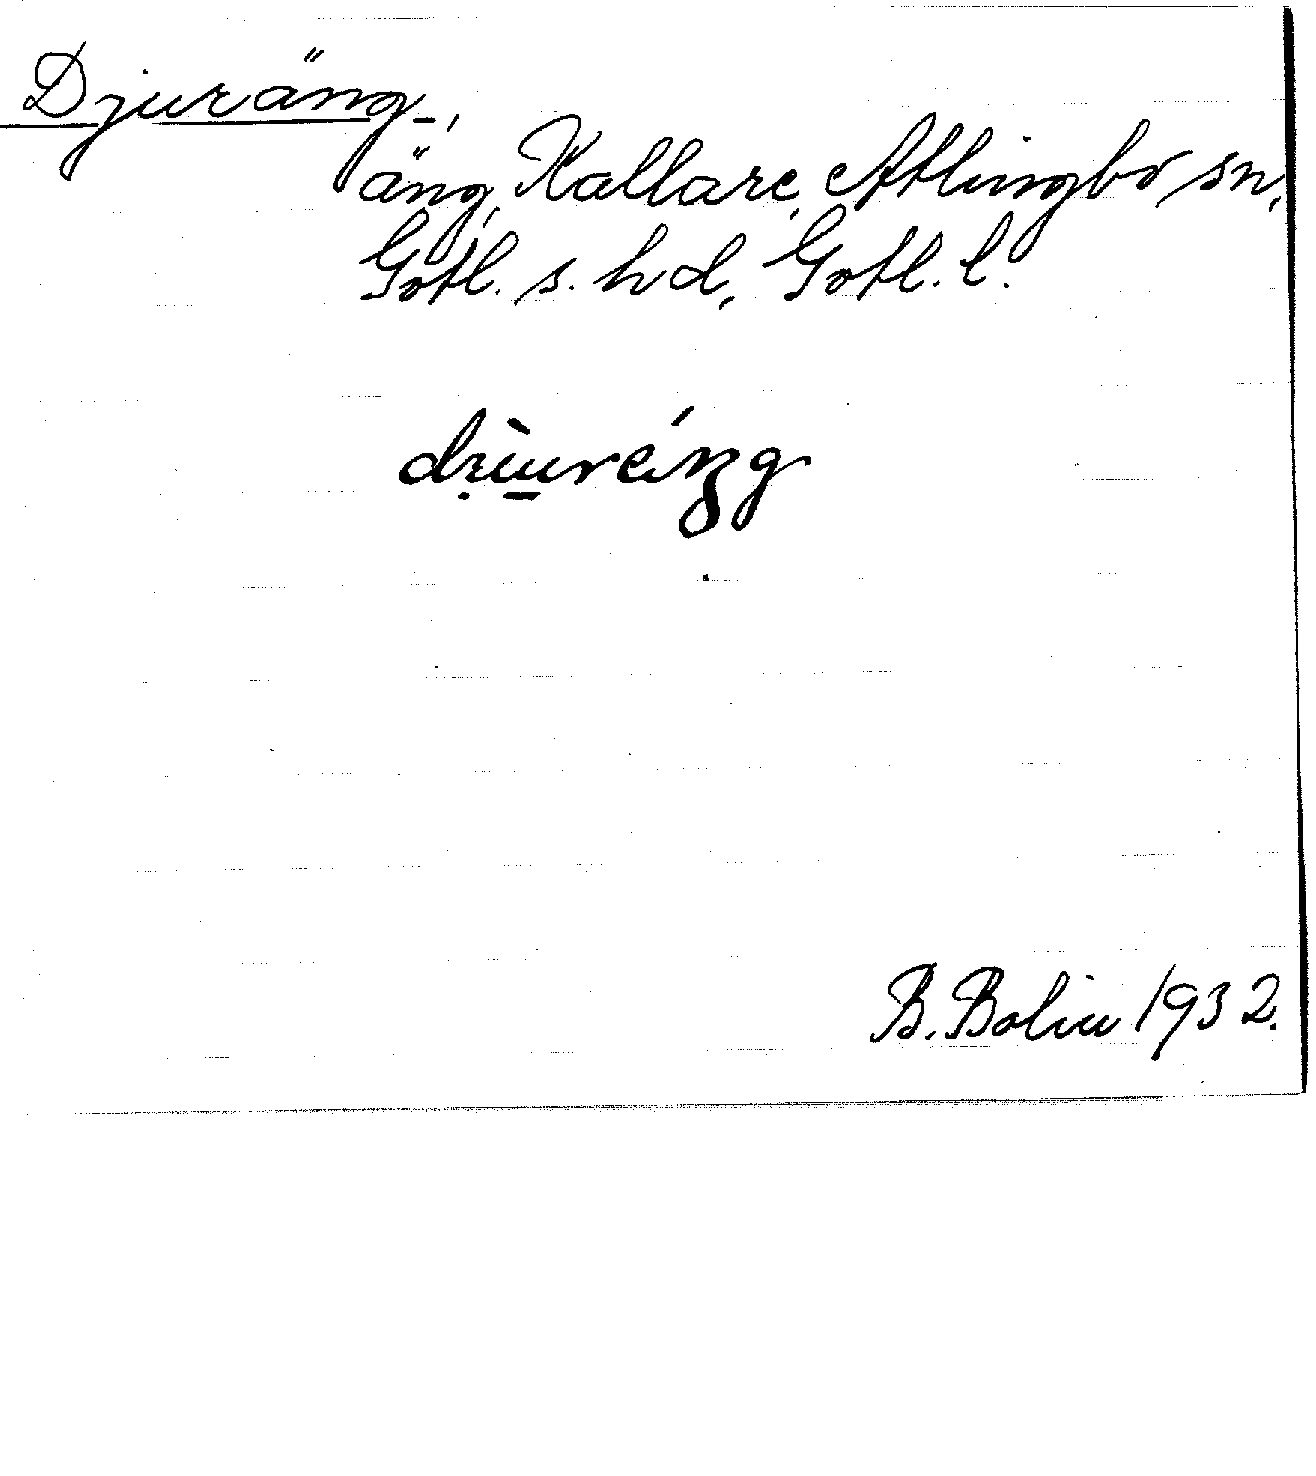 Djuräng,
äng, Kallare, Atlingbo sn,
Gotl. s. hd, Gotl. l.
B. Bolin 1932.